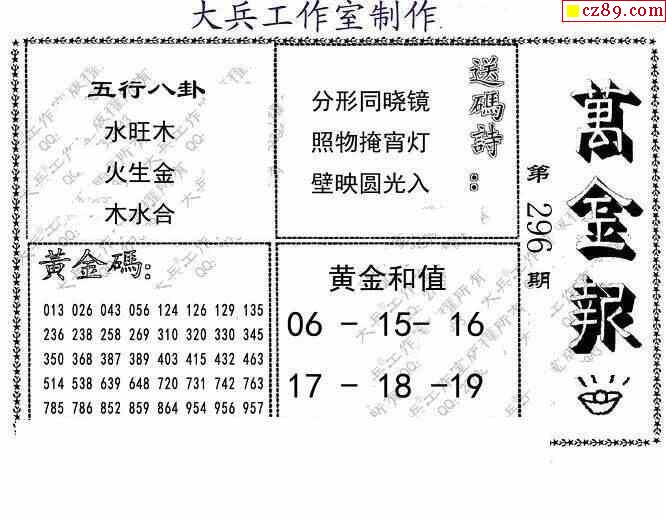 大兵工作室制作
cz89.com
五行八卦
水旺木
火生金
木水合
分形同晓镜
照物掩宵灯
壁映圆光入
送碼詩：
萬金報
第296期
黃金碼：
013 026 043 056 124 126 129 135
236 238 258 269 310 320 330 345
350 368 387 389 403 415 432 463
514 538 639 648 720 731 742 763
785 786 852 859 864 954 956 957
黄金和值
06 - 15- 16
17 - 18 -19